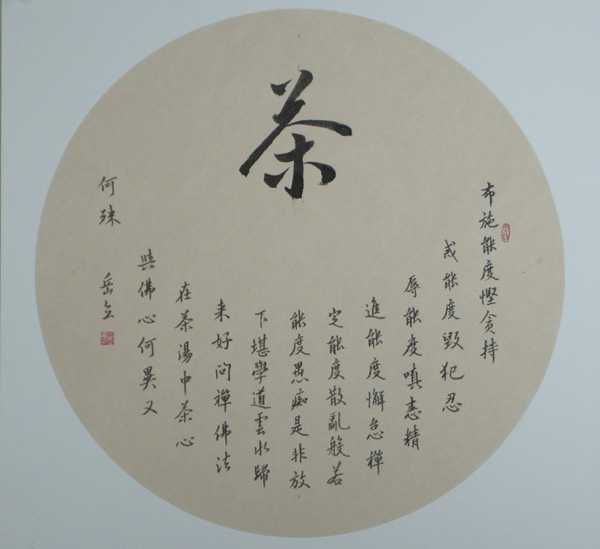 茶
布施能度慳貪持
戒能度毀犯忍
辱能度嗔恚精
進能度懈怠禪
定能度散亂般若
能度愚痴是非放
下堪學道雲水歸
来好问禪佛法
在茶湯中茶心
與佛心何異又
何殊
岳立